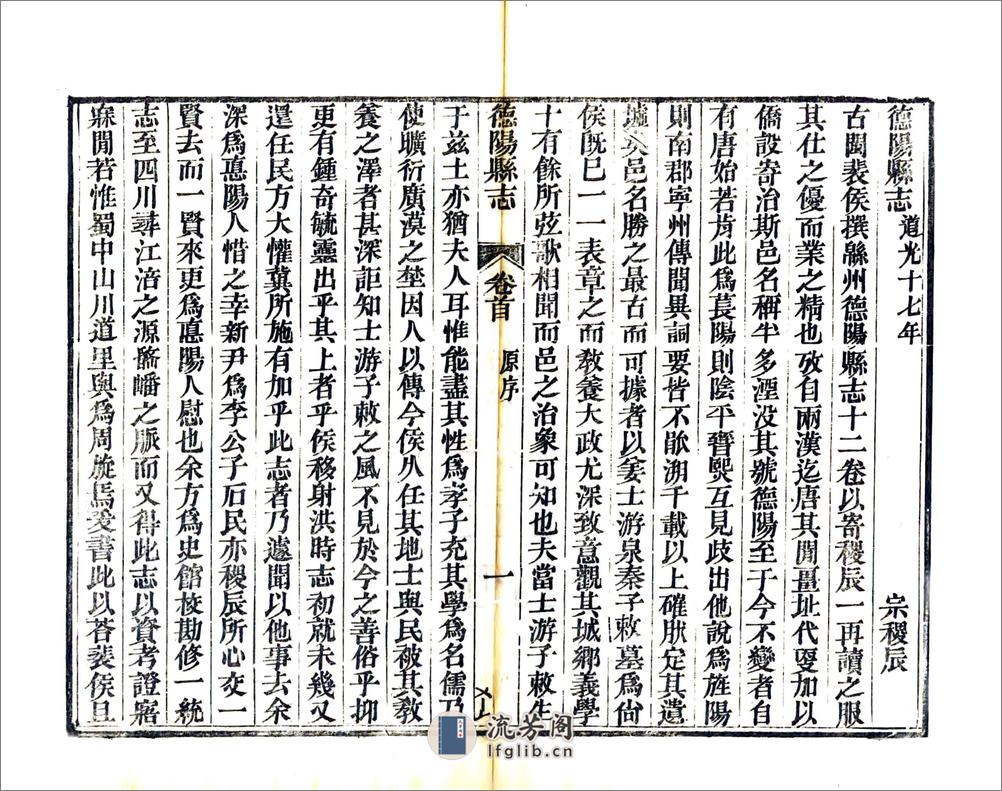 德陽縣志 道光十七年 宗稷辰
古閩裴侯撰緜州德陽縣志十二卷以寄稷辰一再讀之服
其仕之優而業之精也攷自兩漢迄唐其閒畺址代夏加以
僑設寄治斯邑名稱半多湮没其號德陽至于今不變者自
有唐始若昔此爲萇陽則陰平晉熙互見歧出他說爲旌陽
則南郡寧州傳聞異詞要皆不能溯千載以上確肰定其遺
墟矣邑名勝之最古而可據者以姜士游泉秦子敕墓爲尙
侯旣巳一一表章之而敎養大政尤深致意觀其城鄉義學
十有餘所弦歌相聞而邑之治象可知也夫當士游子敕生
德陽縣志 卷首 原序 一
于兹土亦猶夫人耳惟能盡其性爲孝子充其學爲名儒乃
使曠衍廣漠之埜因人以傳今侯久任其地士與民被其敎
養之澤者甚深詎知士游子敕之風不見於今之善俗乎抑
更有鍾奇毓靈出乎其上者乎侯移射洪時志初就未幾又
還任民方大懽冀所施有加乎此志者乃遽聞以他事去余
深爲悳陽人惜之幸新尹爲李公子石民亦稷辰所心交一
賢去而一賢來更爲悳陽人慰也余方爲史館校勘修一統
志至四川尋江涪之源酃皤之脈而又得此志以資考證寤
寐閒若惟蜀中山川道里與爲周旋焉爰書此以荅裴侯且
流芳阁
lfglib.cn